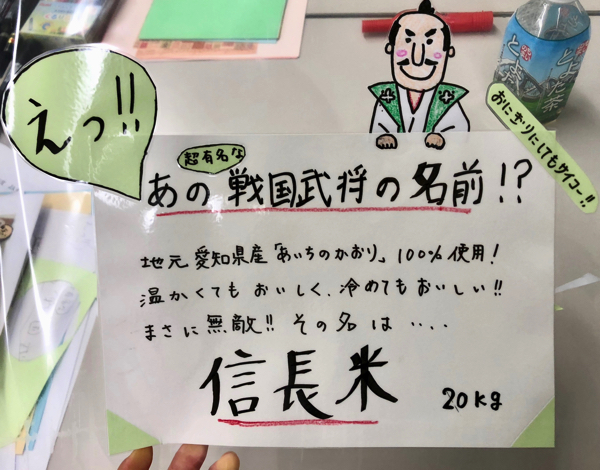 えっ!!
超有名な
あの戦国武将の名前!?
おにぎりにしてもサイコー!!
地元愛知県産「あいちのかおり」100%使用!
温かくてもおいしく、冷めてもおいしい!!
まさに無敵!! その名は‥‥
信長米
20kg